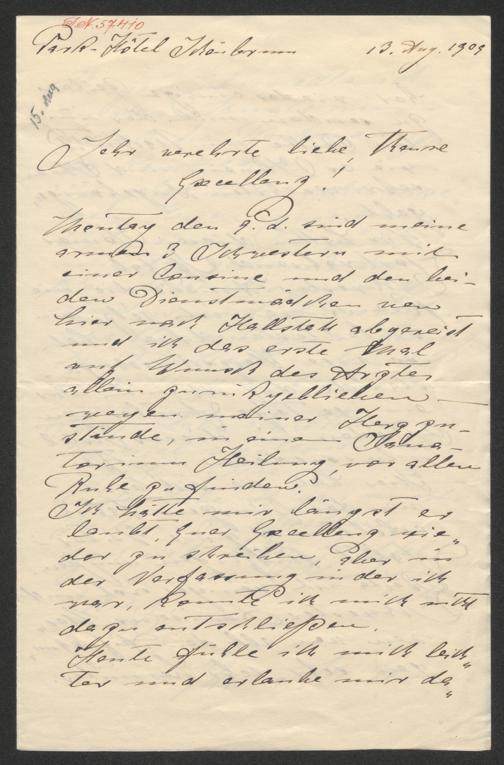 I.N. 57410
Park-Hôtel Schönbrunn 13. Aug. 1909
15. Aug
Sehr verehrte liebe, theure
Excellenz!
Montag den 9. d. sind meine
armen 3 Schwestern mit
einer Cousine und den bei-
den Dienstmädchen von
hier nach Hallstatt abgereist
und ich das erste Mal
auf Wunsch des Arztes
allein zurückgeblieben –
wegen meiner Herzzu-
stände, in einem Sana-
torium Heilung, vor allem
Ruhe zu finden.
Ich hätte mir längst er
laubt, Euer Excellenz wie„
der zu schreiben, aber in
der Verfassung in der ich
war, konnte ich mich nicht
dazu entschließen.
Heute fühle ich mich leich„
ter und erlaube mir da„